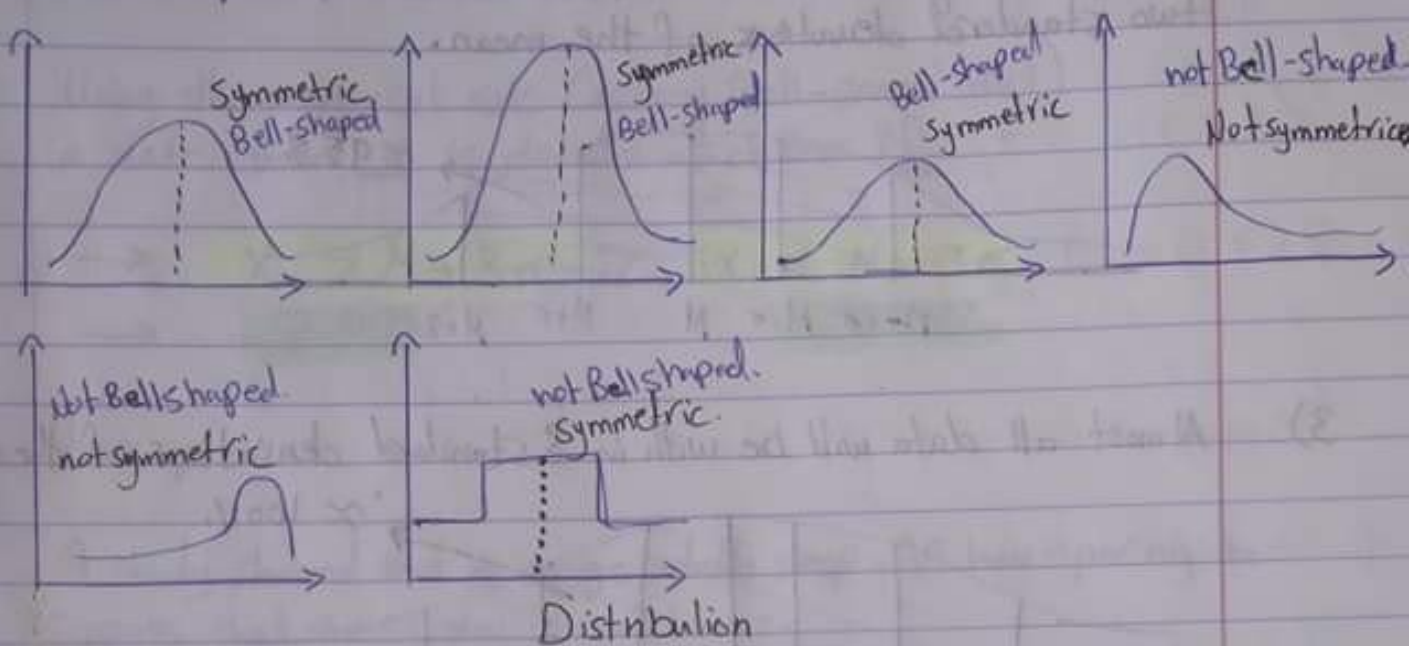 Symmetric
Bell-shaped
Symmetric
Bell-shaped
Bell-shaped
Symmetric
not Bell-shaped
Not symmetric
Not Bellshaped
not symmetric
not Bellshaped.
Symmetric.
Distribution
3) Almost all data will be with